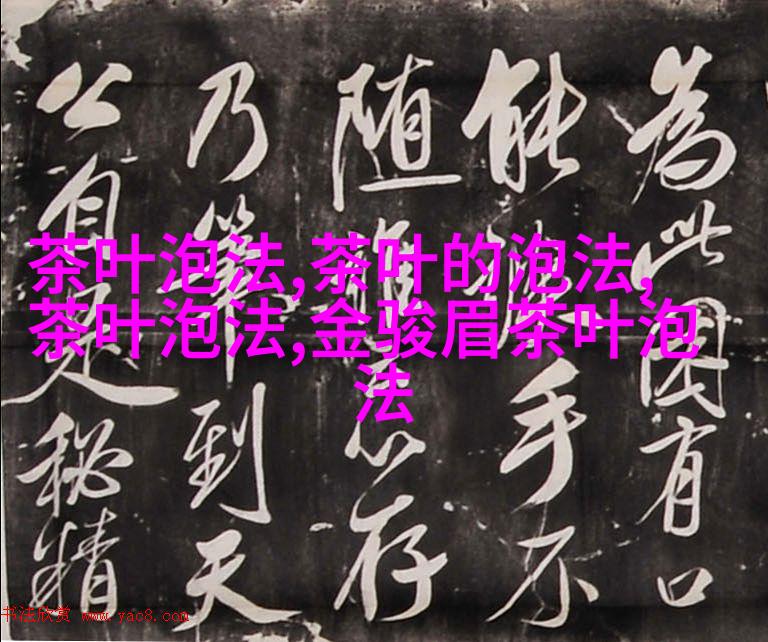 茶叶泡法,茶叶的泡法,
茶叶泡法,金骏眉茶叶泡
法
為此有口
能手不
随存
乃筆到天
公自是秘精
书法欣赏 www.yac8.com